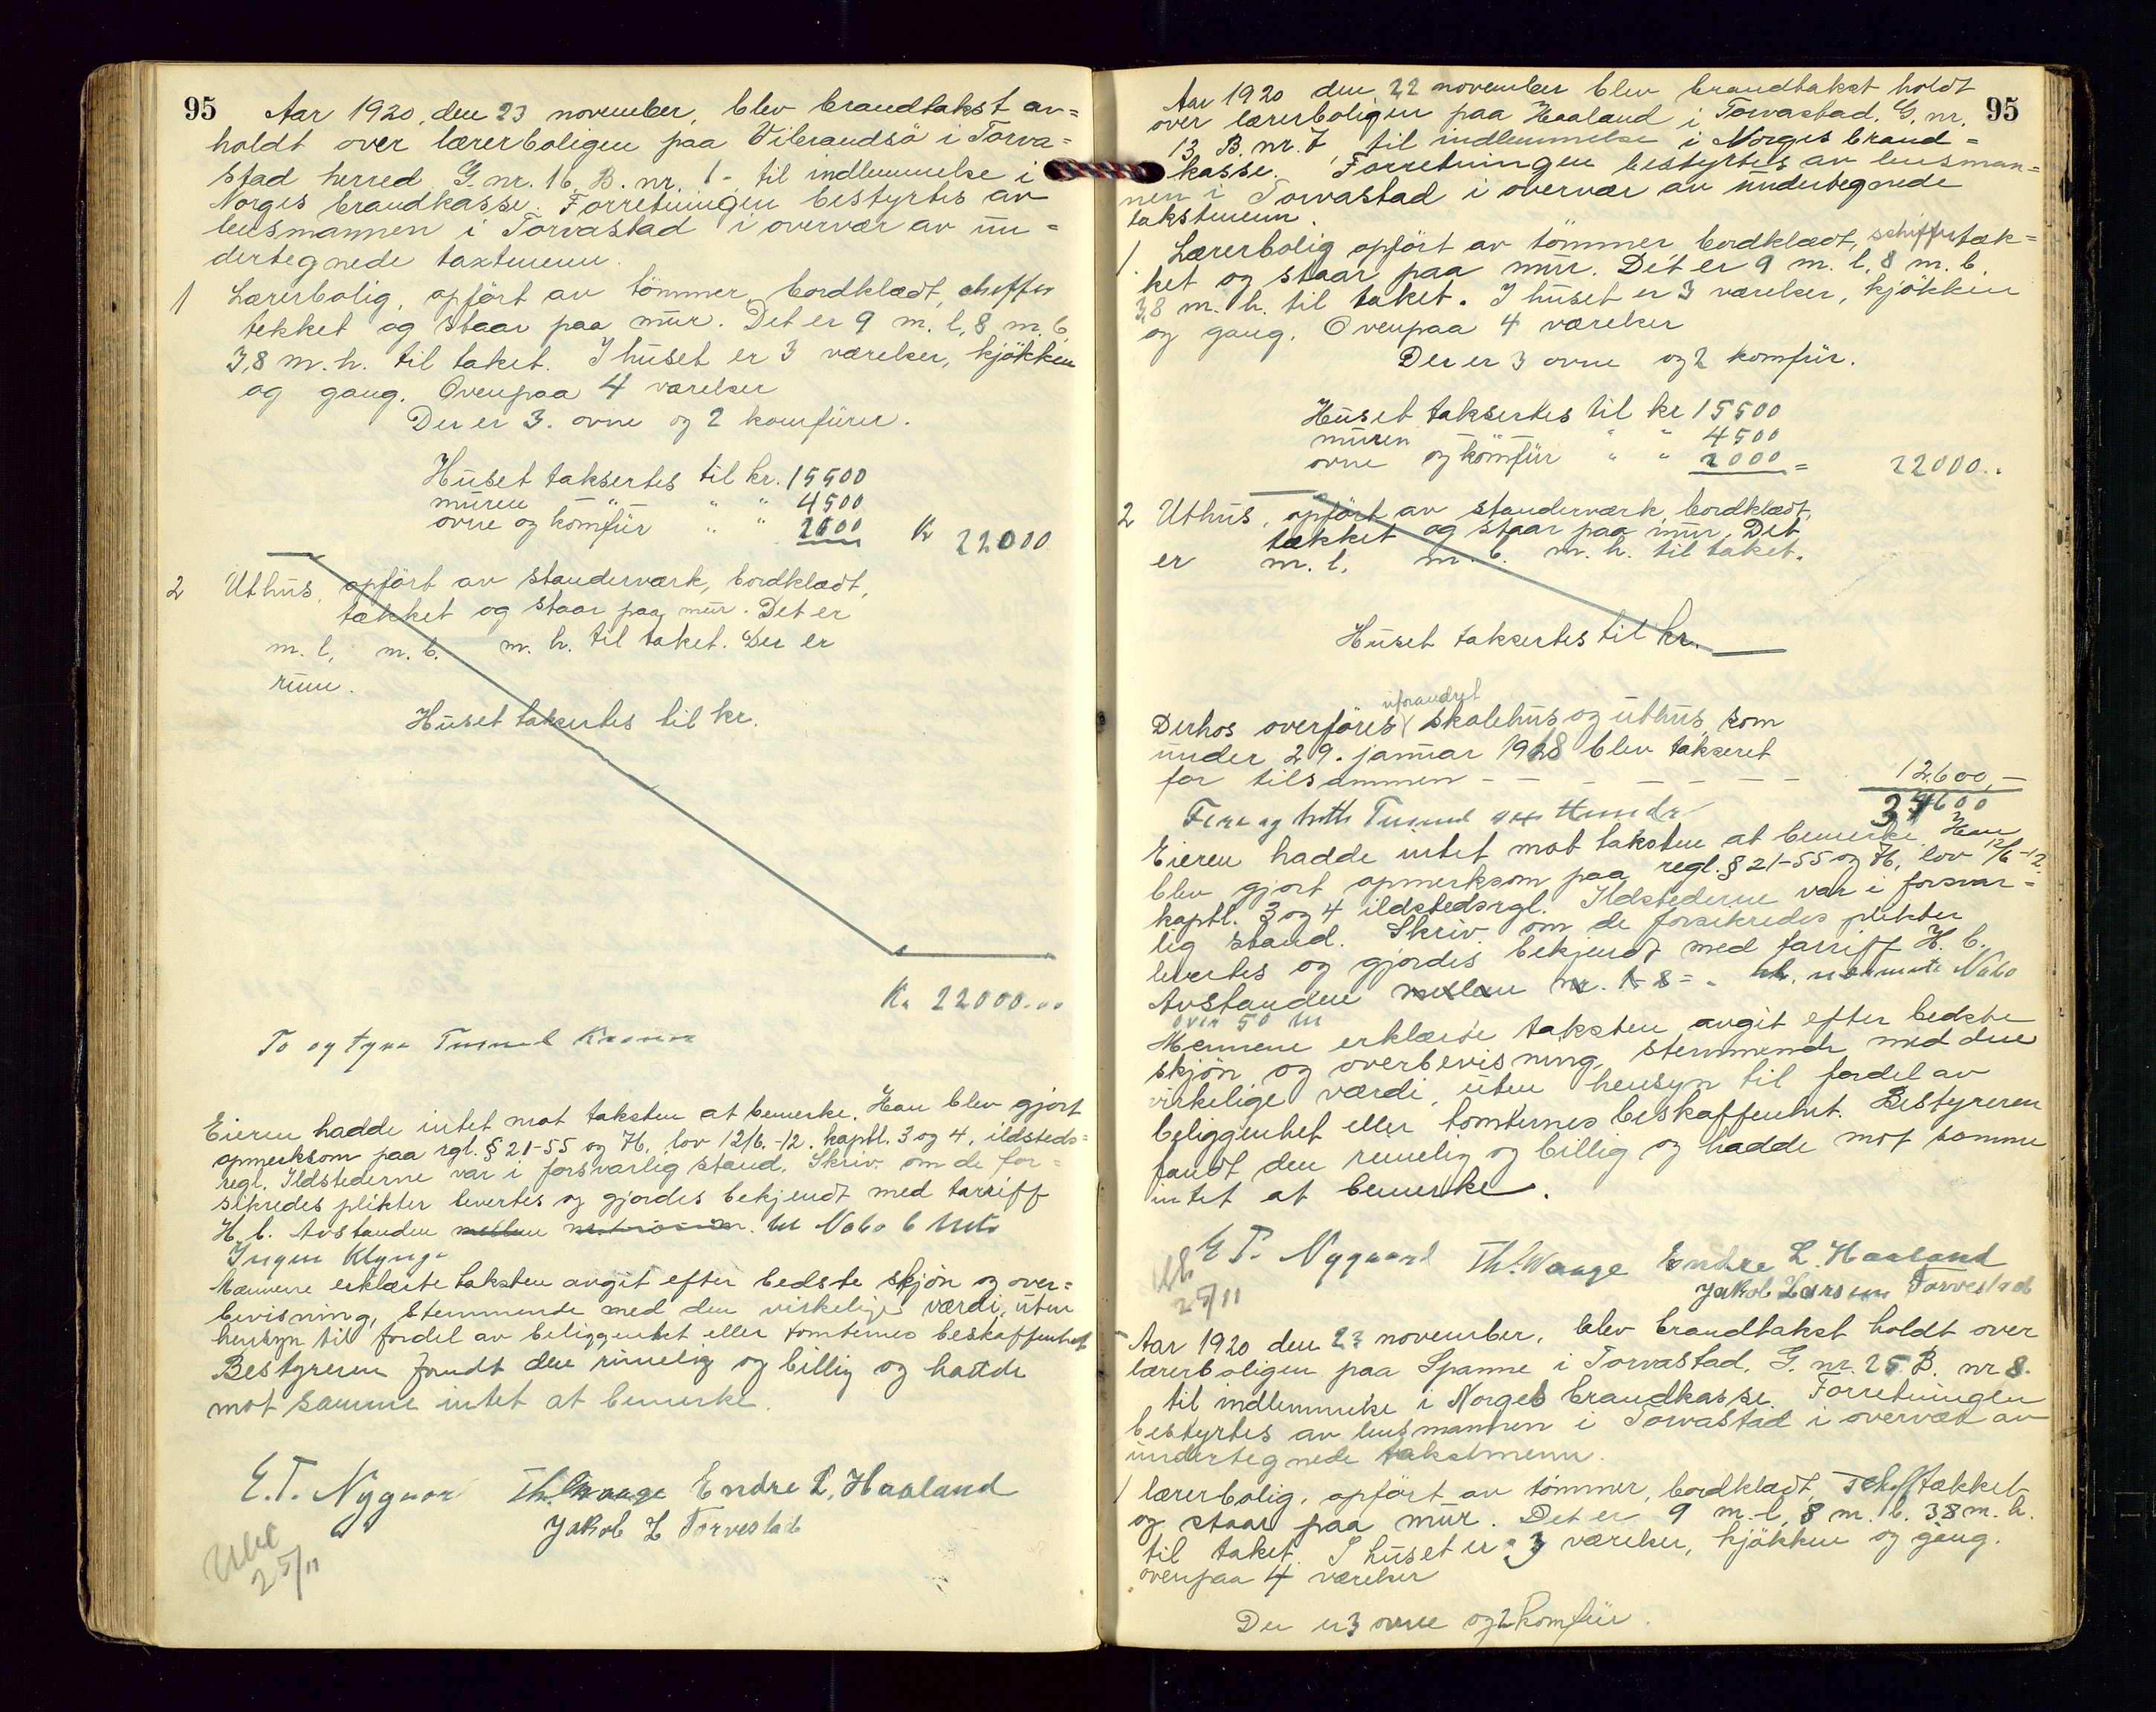 95 Aar 1920, den 23 november, blev brandtakst av=
holdt over lærerboligen paa Vibrandsö i Torva=
stad herred G. nr. 16. B. nr. 1 - til indlemmelse i
Norges brandkasse. Forretningen bestyrtes av
lensmannen i Torvastad i overvær av un=
dertegnede taxtmenn.
1 Lærerbolig, opfört av tömmer, bordklædt,
tekket og staar paa mur. Det er 9 m. l, 8 m. b,
3,8 m. h. til taket. I huset er 3 værelser, kjökken
og gang. Ovenpaa 4 værelser
Der er 3. ovne og 2 komfürer.
Huset taksertes til kr. 15500
muren " " " 4500
ovne og komfür " " 2000 Kr 22000
2 Uthus, opfört av standerværk, bordklædt,
tækket og staar paa mur. Det er
m. l, m. b. m. h. til taket. Der er
rum.
Huset taksertes til kr.
Kr 22000...
To og tyve Tusind Kroner
Eieren hadde intet mot taksten at bemerke. Han blev gjort
opmerksom paa rgl. § 21-55 og 76, lov 12/6.-12. kaptl. 3 og 4, ildsteds=
regl. Ildstederne var i forsvarlig stand. Skriv. om de for=
sikredes plikter levertes og gjordes bekjendt med tarriff
H. b. Avstanden mellem til Nabo 6 mtr
Ingen Klynge
Mænnene erklærte taksten avgit efter bedste skjön og over=
bevisning, stemmende med den virkelige værdi, uten
hensyn til fordel av beliggenhet eller tomternes beskaffenhet
Bestyreren fandt den rimelig og billig og hadde
mot samme intet at bemerke.
E. T. Nygaar Th. Waage Endre L. Haaland
Jakob L Torvestad
25/11
Aar 1920 den 22 november blev brandtakst holdt 95
over lærerboligen paa Haaland i Torvastad. G. nr.
13, B. nr. 7, til indlemmelse i Norges brand=
kasse. Forretningen bestyrtes av lensman=
nen i Torvastad i overvær av undertegnede
takstmenn.
1. Lærerbolig opfört av tömmer, bordklædt, schiffertæk=
ket og staar paa mur. Det er 9 m. l, 8 m. b,
3,8 m. h. til taket. I huset er 3 værelser, kjökken
og gang. Ovenpaa 4 værelser
Der er 3 ovne og 2 komfür.
Huset taksertes til kr 15500
muren " " 4500
ovne og komfür " " 2000 = 22000..
2 Uthus, opfört av standerværk, bordklædt,
tækket og staar paa mur. Det
er m. l, m. b. m. h. til taket.
Huset taksertes til kr.
uforandret
Derhos overföres skolehus og uthus, som
under 29. januar 1918 blev takseret
for tilsammen - - - - - - - 12600,-
34600
Fire og tretti Tusind sex Hundr
Eieren hadde intet mot taksten at bemerke. Han
blev gjort opmerksom paa regl. § 21-55 og 76, lov 12/6-12.
kaptl. 3 og 4 ildstedsrgl. Ildstederne var i forsvar=
lig stand. Skriv. om de forsikredes plikter
levertes og gjordes bekjendt med tarriff H. b.
Avstanden mellem nr. 1-8 = . til nærmeste Nabo
over 50 m
Mennene erklærte taksten avgit efter bedste
skjön og overbevisning, stemmende med den
virkelige værdi, uten hensyn til fordel av
beliggenhet eller tomternes beskaffenhet. Bestyreren
fandt den rimelig og billig og hadde mot samme
intet at bemerke.
E T. Nygaard Th. Waage Endre L. Haaland
Jakob Larsen Torvestad
25/11
Aar 1920 den 23 november, blev brandtakst holdt over
lærerboligen paa Spanne i Torvastad, G. nr. 25 B. nr 8.
til indlemmelse i Norges brandkasse. Forretningen
bestyrtes av lensmannen i Torvastad i overvær av
undertegnede takstmenn.
1 lærerbolig, opfört av tömmer, bordklædt, tækket
og staar paa mur. Det er 9 m. l, 8 m. b. 38 m. h.
til taket. I huset er 3 værelser, kjökken og gang.
ovenpaa 4 værelser
Der er 3 ovne og 2 komfür.